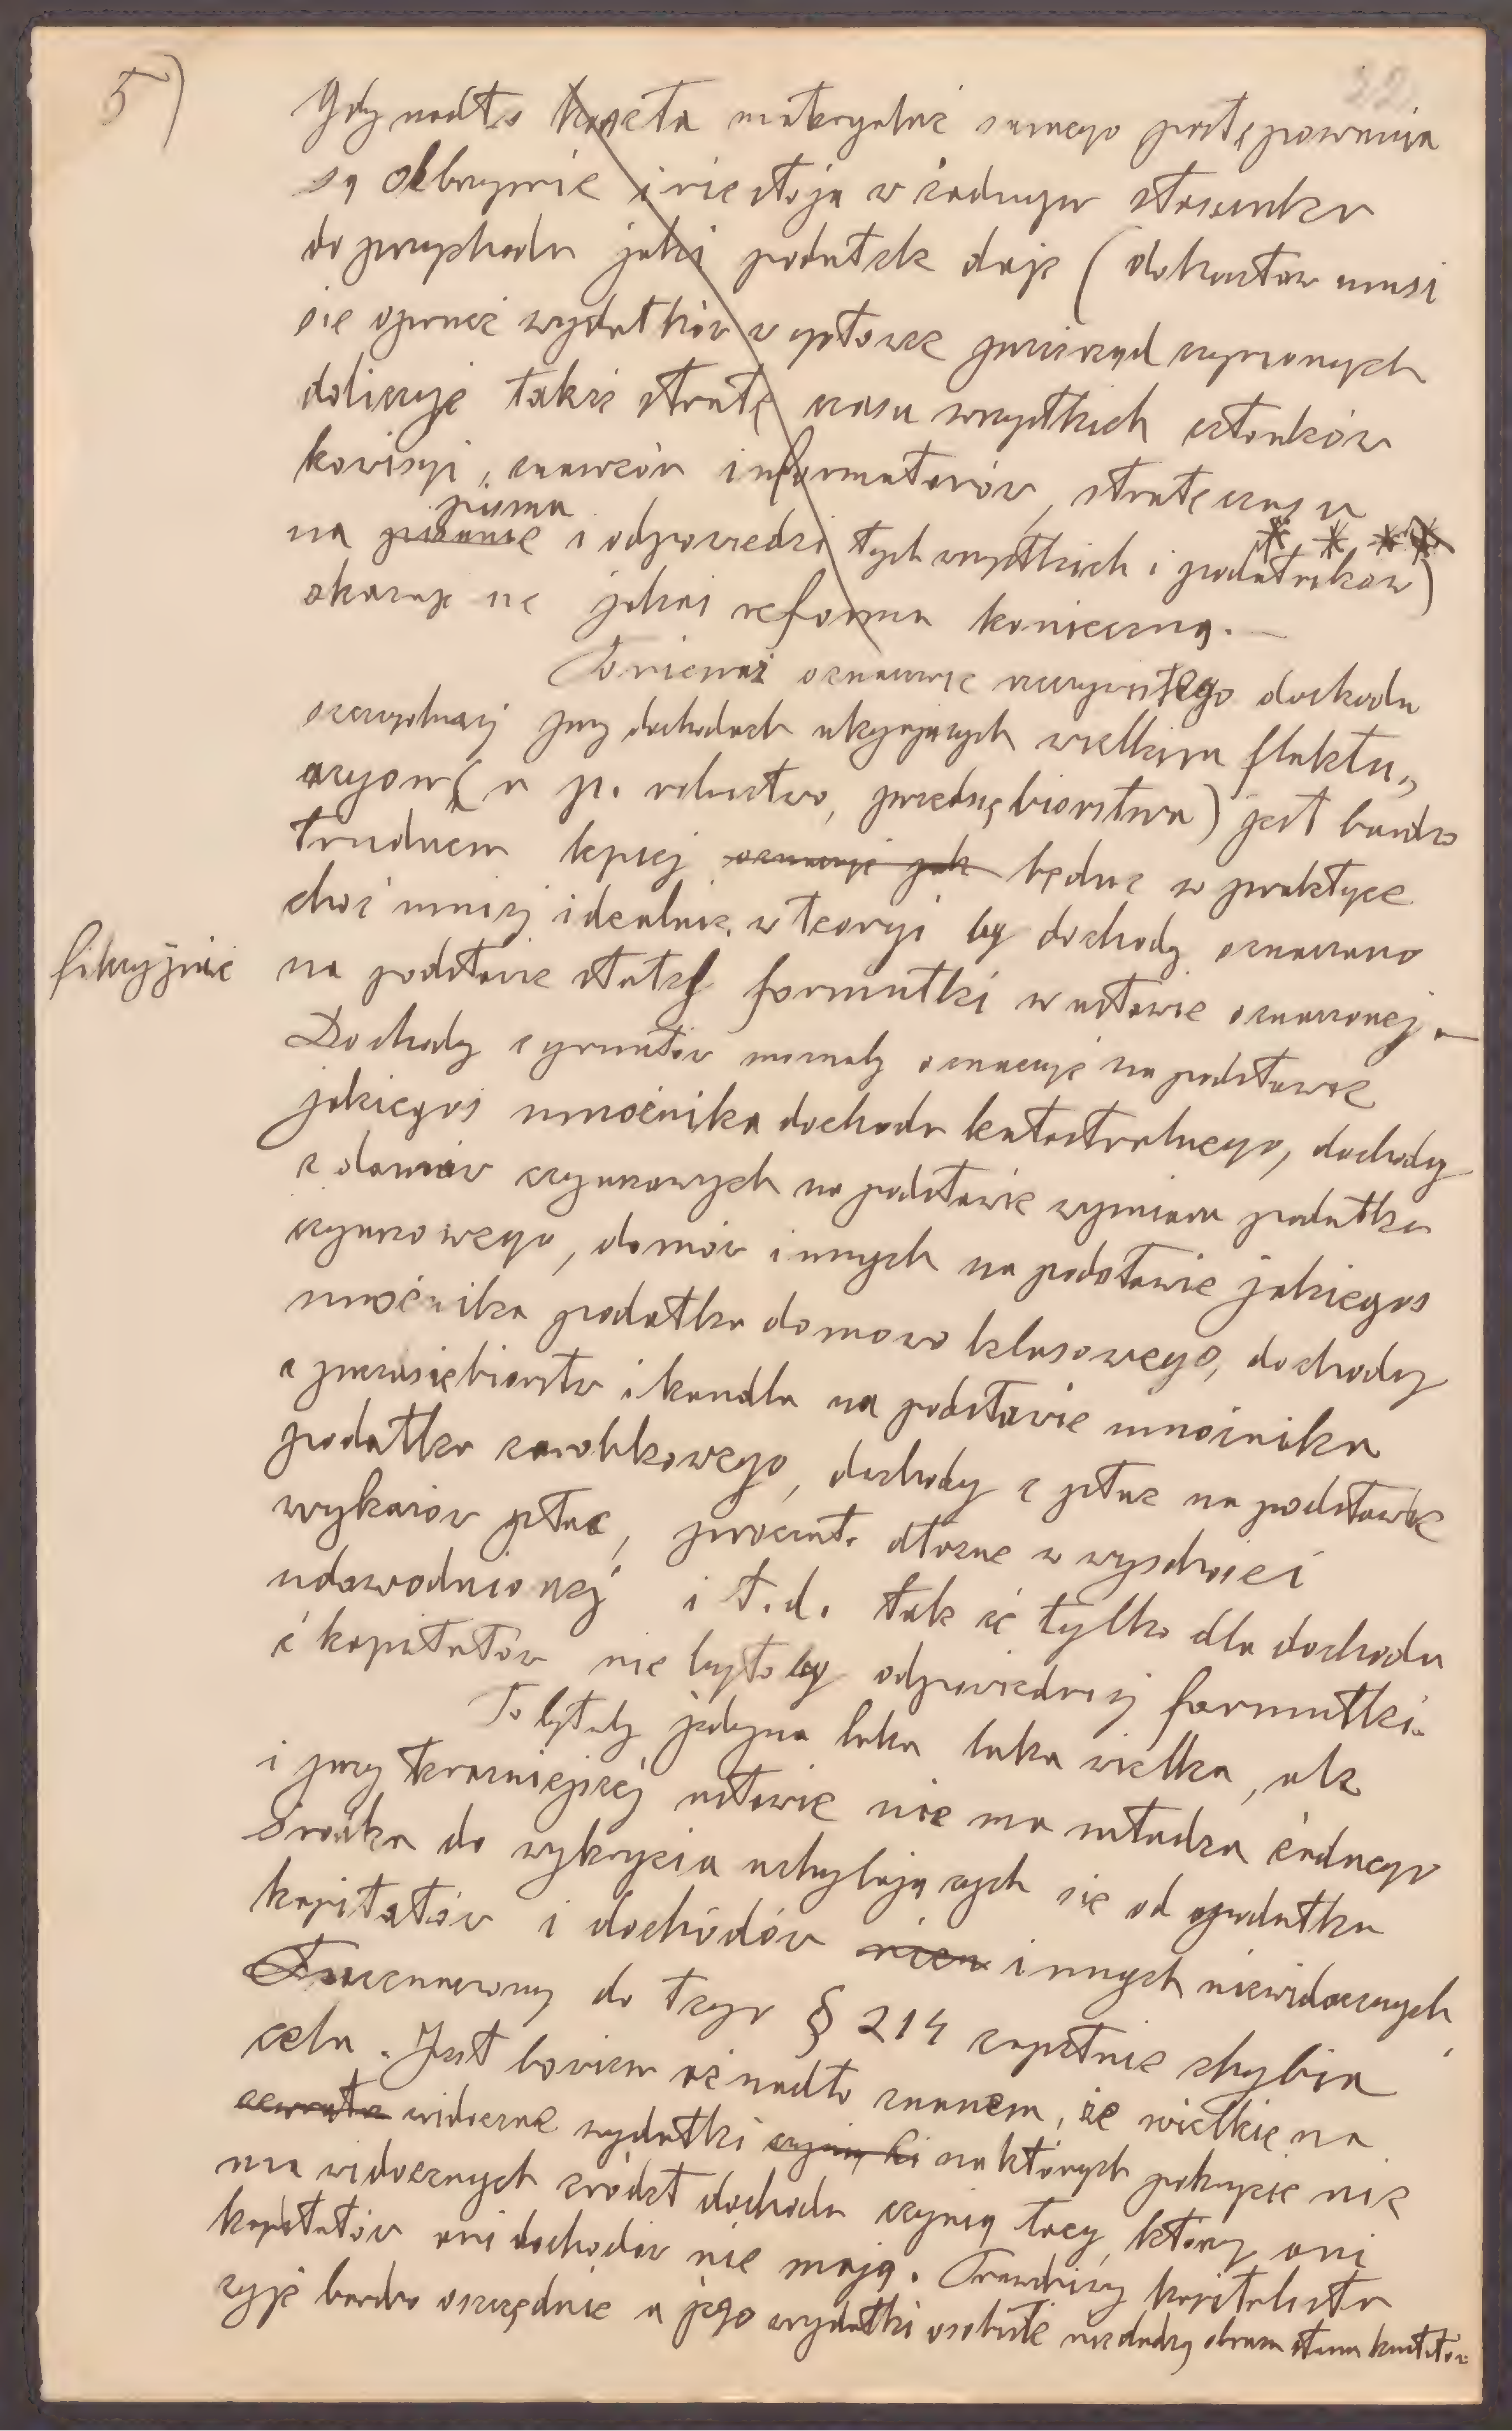 5)
22
Gdy nadto koszta materyalne samego postępowania
są olbrzymie i nie stoją w żadnym stosunku
do przychodu jaki podatek daje (do kosztów musi
się oprócz wydatków w gotowce przez rząd czynionych
doliczyć także stratę czasu wszystkich członków
komisyi, znawców informatorów, stratę czasu
pisma
na pisanie i odpowiedzi tych wszystkich i podatników)
* * * *
okazuje się jakaś reforma konieczną. —
Ponieważ oznaczenie rzeczywistego dochodu
szczególniej przy dochodach ulegających wielkim fluktu„
acyom (n. p. rolnictwo, przedsiębiorstwa) jest bardzo
trudnem lepiej oznaczyć jak będzie w praktyce
choć mniej idealnie w teoryi by dochody oznaczano
fikcyjnie
na podstawie stałej formułki w ustawie oznaczonej. —
Dochody z gruntów możnaby oznaczyć na podstawie
jakiegoś mnożnika dochodu katastralnego, dochody
z domów czynszowych na podstawie wymiaru podatku
czynszowego, domów innych na podstawie jakiegoś
mnożnika podatku domowo klasowego, dochody
z przedsiębiorstw i handlu na podstawie mnożnika
podatku zarobkowego, dochody z płac na podstawie
wykazów płac, procent. dłużne w wysokości
udowodnionej i t. d. tak że tylko dla dochodu
z kapitałów nie byłoby odpowiedniej formułki.
To byłaby jedyna luka luka wielka, ale
i przy teraźniejszej ustawie nie ma władza żadnego
środka do wykrycia uchylających się od podatku
kapitałów i dochodów innych niewidocznych
Przeznaczony do tego § 214 zupełnie chybia
celu. Jest bowiem aż nadto znanem, że wielkie na
zewnątrz widoczne wydatki czynią ci na których pokrycie nie
ma widocznych źródeł dochodu czynią tacy, którzy ani
kapitałów ani dochodów nie mają. Prawdziwy kapitalista
żyje bardzo oszczędnie a jego wydatki osobiste nie dadzą obrazu stanu